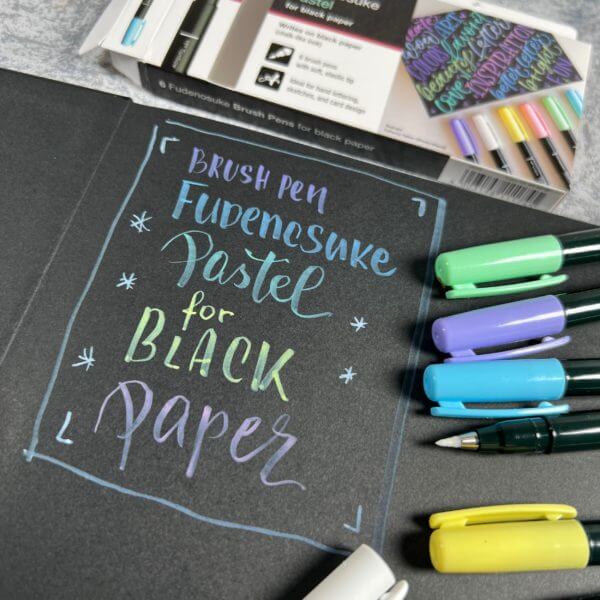 Fudenosuke
Pastel
for black paper
Writes on black paper
(chalk-like look)
6 brush pens
with soft, elastic tip
Ideal for hand lettering,
sketches, and card design
6 Fudenosuke Brush Pens for black paper
BRUSH PEN
FUDENOSUKE
Pastel
for
BLACK
paper